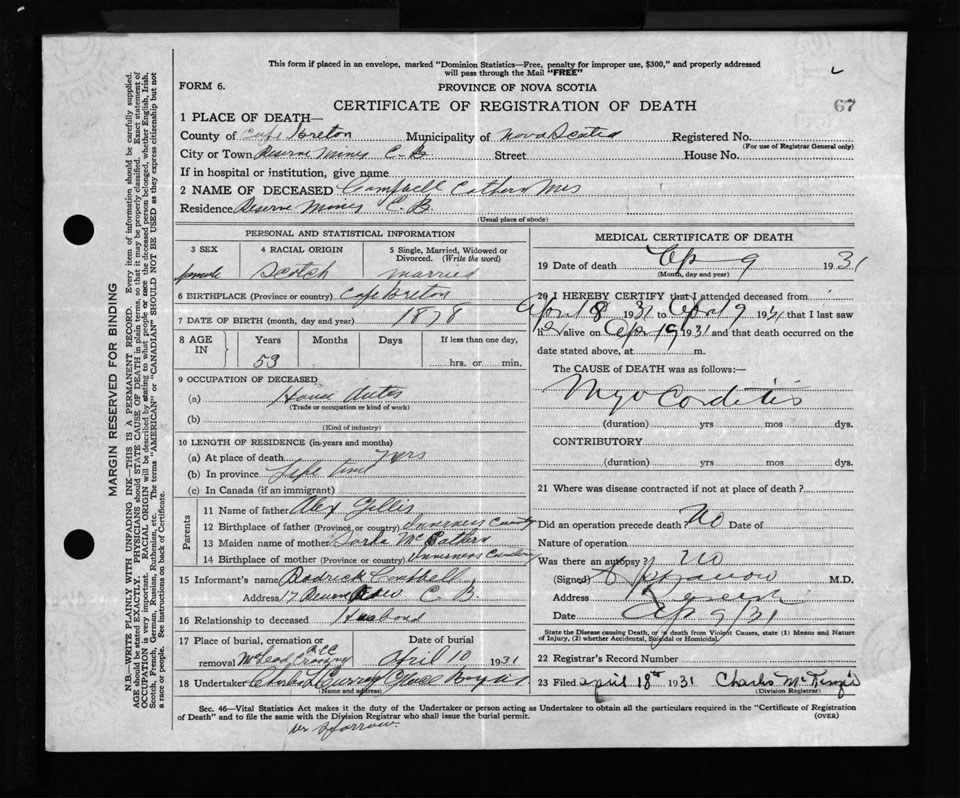 This form if placed in an envelope, marked "Dominion Statistics—Free, penalty for improper use, $300," and properly addressed
will pass through the Mail "FREE"
FORM 6.
PROVINCE OF NOVA SCOTIA
CERTIFICATE OF REGISTRATION OF DEATH
67
1 PLACE OF DEATH—
County of Cape Breton Municipality of Nova Scotia Registered No.
(For use of Registrar General only)
City or Town Reserve Mines C. B. Street House No.
If in hospital or institution, give name
2 NAME OF DECEASED Campbell Mrs
Residence Reserve Mines C. B.
(Usual place of abode)
PERSONAL AND STATISTICAL INFORMATION
3 SEX 4 RACIAL ORIGIN 5 Single, Married, Widowed or Divorced. (Write the word)
female Scotch married
6 BIRTHPLACE (Province or country) Cape Breton
7 DATE OF BIRTH (month, day and year) 1878
8 AGE IN Years Months Days If less than one day,
53 hrs. or min.
9 OCCUPATION OF DECEASED
(a)
(Trade or occupation or kind of work)
(b)
(Kind of industry)
10 LENGTH OF RESIDENCE (in years and months)
(a) At place of death yrs
(b) In province Life time
(c) In Canada (if an immigrant)
Parents
11 Name of father Alex Gillis
12 Birthplace of father (Province or country) Inverness County
13 Maiden name of mother
14 Birthplace of mother (Province or country) Inverness County
15 Informant's name Rodrick Campbell
Address 17 C. B.
16 Relationship to deceased Husband
17 Place of burial, cremation or removal Date of burial
April 10 1931
18 Undertaker Glace Bay
(Name and address)
MEDICAL CERTIFICATE OF DEATH
19 Date of death Ap 9 1931
(Month, day and year)
20 I HEREBY CERTIFY that I attended deceased from
April 8 1931 to April 9 1931 that I last saw
h er alive on April 9 1931 and that death occurred on the
date stated above, at m.
The CAUSE of DEATH was as follows:—
Myocarditis
(duration) yrs mos dys.
CONTRIBUTORY
(duration) yrs mos dys.
21 Where was disease contracted if not at place of death?
Did an operation precede death? No Date of
Nature of operation
Was there an autopsy? No
(Signed) M.D.
Address
Date Ap 9/31
State the Disease causing Death, or, in death from Violent Causes, state (1) Means and Nature
of Injury, (2) whether Accidental, Suicidal or Homicidal.
22 Registrar's Record Number
23 Filed April 18th 1931 Charles McKenzie
(Division Registrar)
Sec. 46—Vital Statistics Act makes it the duty of the Undertaker or person acting as Undertaker to obtain all the particulars required in the "Certificate of Registration
of Death" and to file the same with the Division Registrar who shall issue the burial permit.
(OVER)
MARGIN RESERVED FOR BINDING
N.B.—WRITE PLAINLY WITH UNFADING INK—THIS IS A PERMANENT RECORD. Every item of information should be carefully supplied.
AGE should be stated EXACTLY. PHYSICIANS should STATE CAUSE OF DEATH in plain terms, so that it may be properly classified. Exact statement of
OCCUPATION is very important. RACIAL ORIGIN will be described by stating to what people or race the deceased person belonged, whether English, Irish,
Scotch, French, German, Russian, Ruthenian, etc. The terms "AMERICAN" or "CANADIAN" SHOULD NOT BE USED as they express citizenship but not
a race or people. See instructions on back of Certificate.